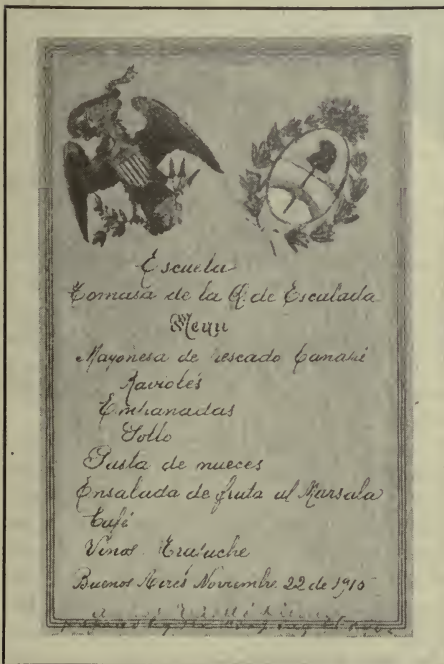 Escuela
Tomasa de la Q. de Escalada
Menu
Mayonesa de pescado
Ravioles
Empanadas
Pollo
Pasta de nueces
Ensalada de fruta al Marsala
Café
Vinos
Buenos Aires Noviembre 22 de 1915